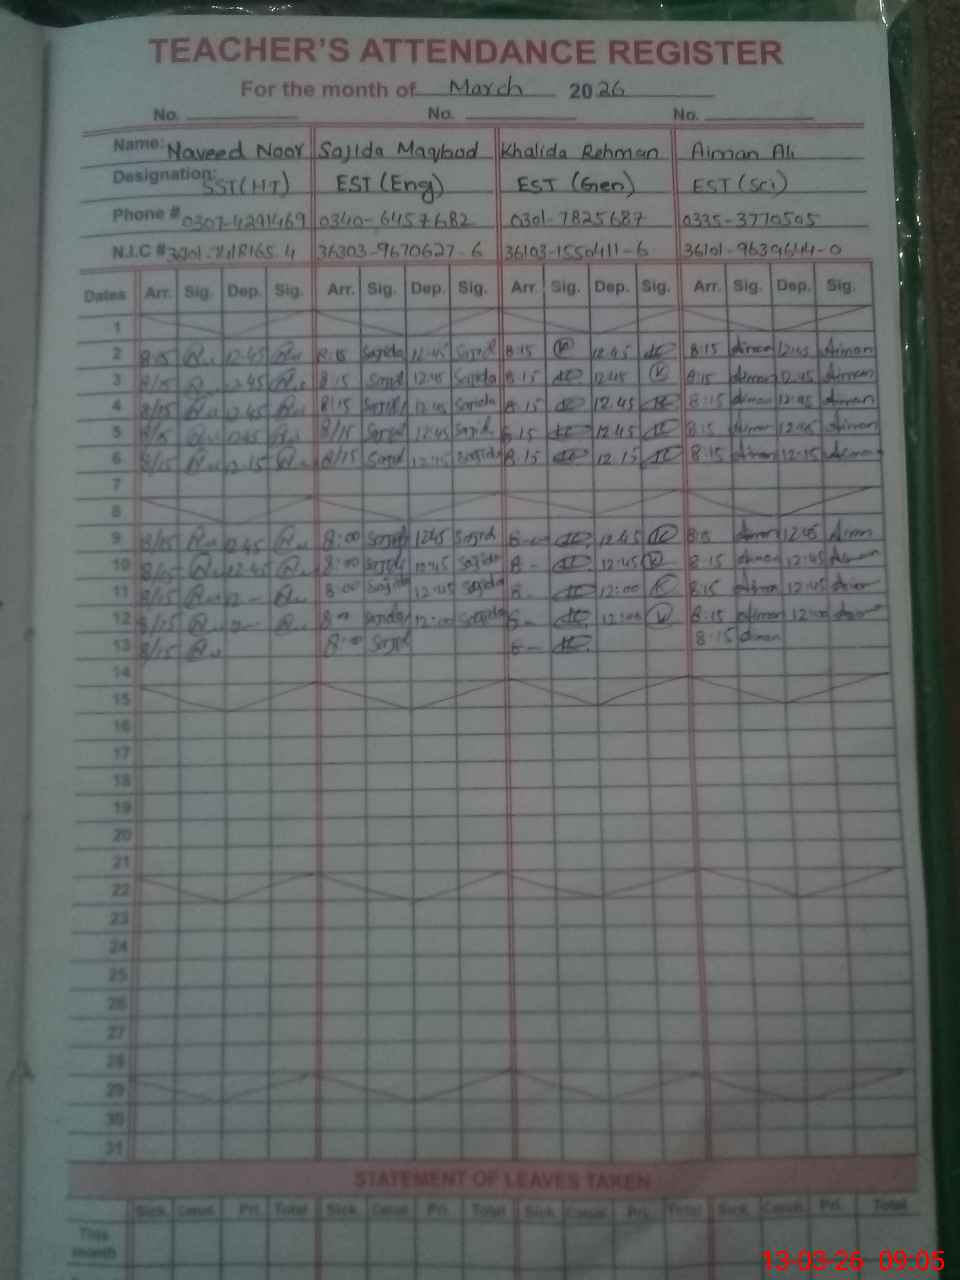 TEACHER'S ATTENDANCE REGISTER
For the month of March 2026
No. No. No.
Name: Naveed Noor Sajida Maqbool Khalida Rehman Aiman Ali
Designation: SST(HT) EST (Eng) EST (Gen) EST (Sci)
Phone # 0307-4291469 0340-6457682 0301-7825687 0335-3770505
N.I.C # 36303-9670627-6 36103-1550411-6 36101-9639644-0
Dates Arr. Sig. Dep. Sig. Arr. Sig. Dep. Sig. Arr. Sig. Dep. Sig. Arr. Sig. Dep. Sig.
1
2 8:15 12.45 8:15 Sajida 12:45 Sajid 8:15 12.45 8:15 Aiman 12:45 Aiman
3 8/15 8:15 Sajid 12:45 Sajida 8.15 12:45 8:15 Aiman 12.45 Aiman
4 8/15 12.45 8/15 Sajid 12.45 Sajida 8.15 12.45 8:15 Aiman 12:45 Aiman
5 8/15 8/15 Sajid 12:45 Sajid 8.15 12.45 8:15 Aiman 12:45 Aiman
6 8/15 12.15 8/15 Sajid Sajida 8.15 12.15 8:15 Aiman 12:15 Aiman
7
8
9 8/15 12.45 8:00 Sajid 1245 Sajid 12.45 Aiman 12:45 Aiman
10 8/15 12.45 8:00 Sajid 12:45 Sajida 12:45 8:15 Aiman 12:45 Aiman
11 8/15 8:00 Sajida 12:45 Sajida 12:00 8:15 Aiman 12:45
12 8/15 Sajida 12:00 Sajida 12:00 8:15 Aiman 12:00
13 8/15 8:00 Sajid 8:15 Aiman
14
15
16
17
18
19
20
21
22
23
24
25
26
27
28
29
30
31
STATEMENT OF LEAVES TAKEN
Sick. Casul. Pri. Total Sick. Casul. Pri. Total Sick. Casul. Pri. Total Sick. Casul. Pri. Total
This month
13-03-26 09:05